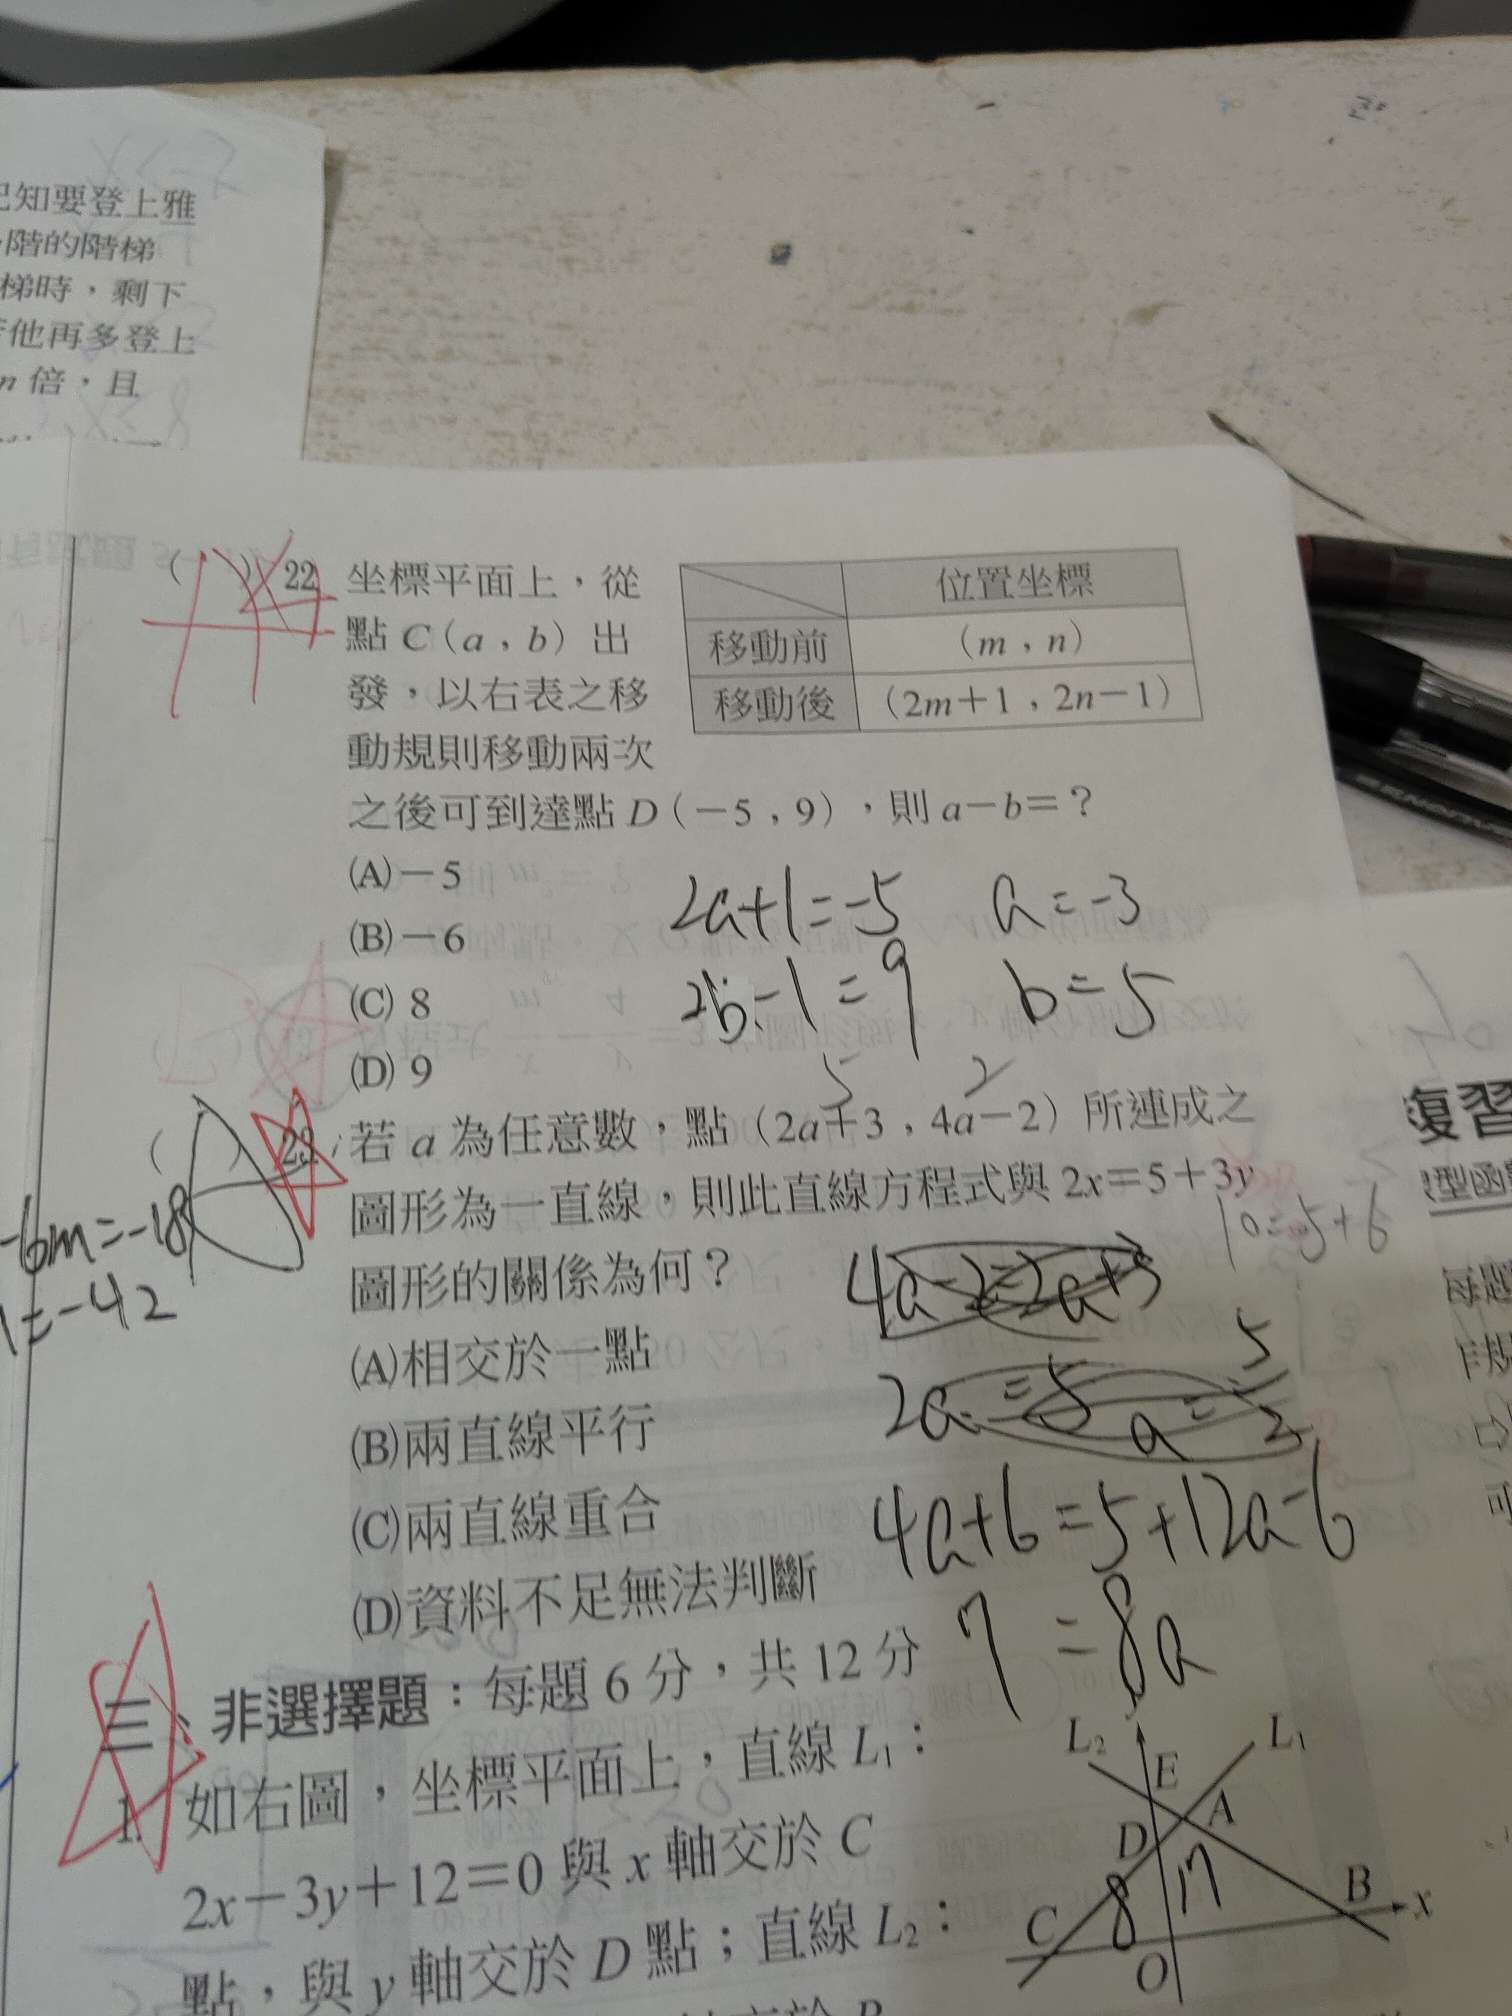 已知要登上雅
階的階梯
梯時，剩下
他再多登上
n倍，且
( ) 22. 坐標平面上，從
點C（a，b）出
發，以右表之移
動規則移動兩次
之後可到達點D（－5，9），則a－b＝？
位置坐標
移動前 （m，n）
移動後 （2m＋1，2n－1）
(A)－5
(B)－6
(C) 8
(D) 9
2a+1=-5 a=-3
2b-1=9 b=5
5 2
( ) 23. 若a為任意數，點（2a＋3，4a－2）所連成之
圖形為一直線，則此直線方程式與2x＝5＋3y
圖形的關係為何？
(A)相交於一點
(B)兩直線平行
(C)兩直線重合
(D)資料不足無法判斷
10=5+6
4a-2=2a+3
2a=5 a=5/2
4a+6=5+12a-6
7=8a
-6m=-18
=-42
二、非選擇題：每題6分，共12分
1. 如右圖，坐標平面上，直線L₁：
2x－3y＋12＝0與x軸交於C
點，與y軸交於D點；直線L₂：
L₂ E L₁
A
D
8 17
C B x
O
複習
型函
每題